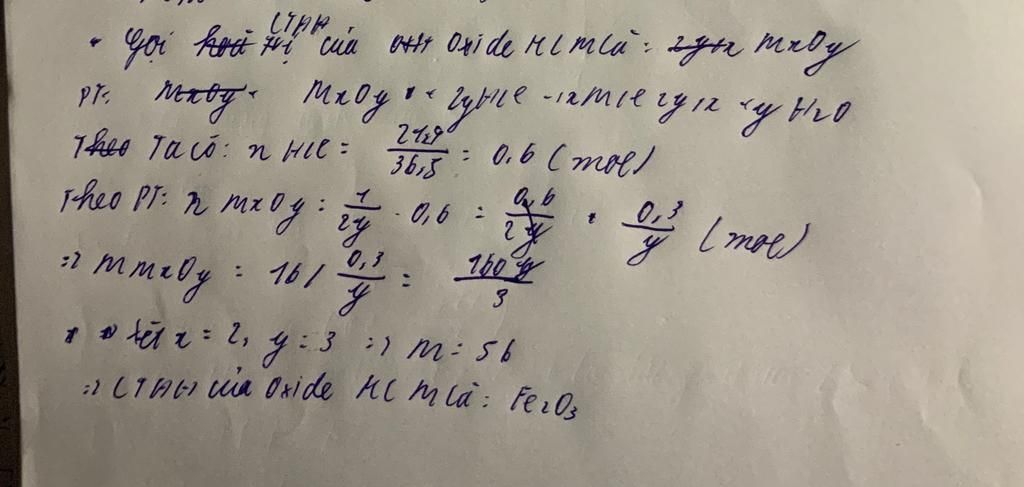 Gọi CTHH của Oxide HLM là: MxOy
PT: MxOy + 2yHCl → xMCl2y/x + yH2O
Ta có: n HCl = 21,9/36,5 = 0,6 (mol)
Theo PT: n MxOy = 1/2y . 0,6 = 0,6/2y = 0,3/y (mol)
=> M MxOy = 16 / 0,3/y = 160y/3
Xét x = 2, y = 3 => M = 56
=> CTHH của Oxide KLM là: Fe2O3